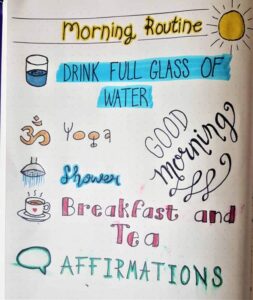 Morning Routine
DRINK FULL GLASS OF
WATER
ॐ Yoga
GOOD
morning
Shower
Breakfast and
Tea
AFFIRMATIONS